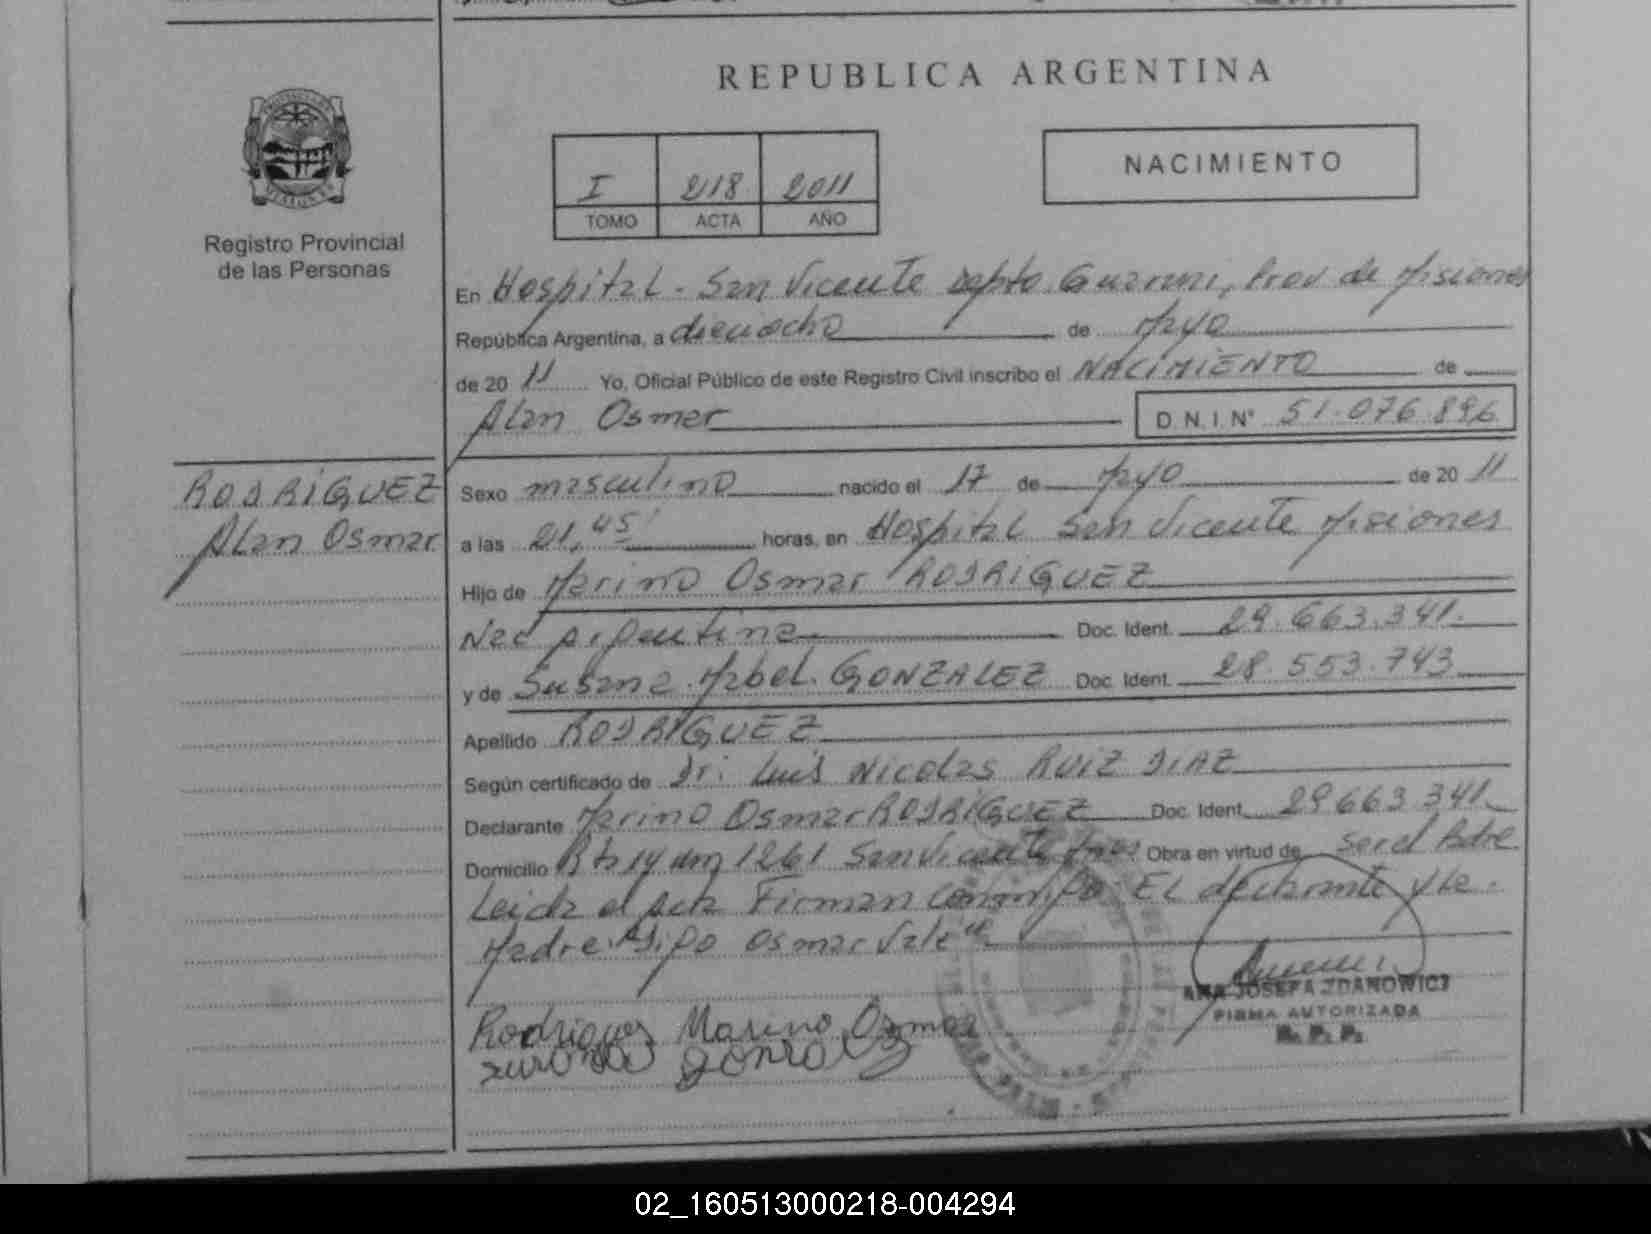 REPUBLICA ARGENTINA
NACIMIENTO
I 218 2011
TOMO ACTA AÑO
Registro Provincial
de las Personas
En Hospital - San Vicente Depto Guarani, Prov de Misiones
República Argentina, a dieciocho de Mayo
de 20 11 Yo, Oficial Público de este Registro Civil inscribo el NACIMIENTO de
Alan Osmar D.N.I. N° 51.076.896
RODRIGUEZ
Alan Osmar
Sexo masculino nacido el 17 de Mayo de 20 11
a las 21,45' horas, en Hospital San Vicente Misiones
Hijo de Marino Osmar RODRIGUEZ
Nac Argentina Doc. Ident. 29.663.341.
y de Susana Mabel GONZALEZ Doc. Ident. 28.553.743
Apellido RODRIGUEZ
Según certificado de Dr. Luis Nicolas RUIZ DIAZ
Declarante Marino Osmar RODRIGUEZ Doc. Ident. 29663.341
Domicilio Rta 14 km 1261 San Vicente Obra en virtud de ser el Padre
Leida el acta Firman conmigo El declarante y la
Madre. Osmar Vale"
Rodriguez Marino Osmar
gonzalez
ANA JOSEFA ZDANOWICZ
FIRMA AUTORIZADA
R. P. P.
02_160513000218-004294